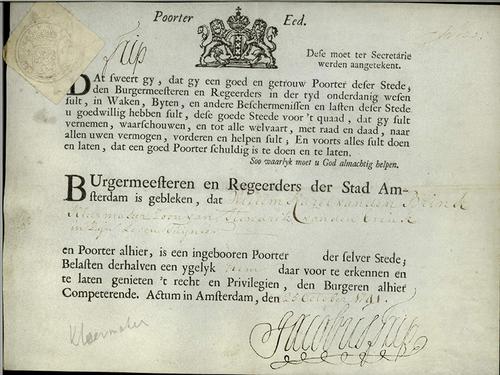 Poorter Eed.
Dese moet ter Secretarie
werden aangetekent.
DAt sweert gy, dat gy een goed en getrouw Poorter deser Stede,
den Burgermeesteren en Regeerders in der tyd onderdanig wesen
sult, in Waken, Byten, en andere Beschermenissen en lasten deser Stede
u goedwillig hebben sult, dese goede Steede voor 't quaad, dat gy sult
vernemen, waarschouwen, en tot alle welvaart, met raad en daad, naar
allen uwen vermogen, vorderen en helpen sult; En voorts alles sult doen
en laten, dat een goed Poorter schuldig is te doen en te laten.
Soo waarlyk moet u God almachtig helpen.
BUrgermeesteren en Regeerders der Stad Am-
sterdam is gebleken, dat Willem Karel van den Brinck
Zoon van Hendrik van den Brinck
in Zyn Leven
en Poorter alhier, is een ingebooren Poorter der selver Stede;
Belasten derhalven een ygelyk hem daar voor te erkennen en
te laten genieten 't recht en Privilegien, den Burgeren alhier
Competerende. Actum in Amsterdam, den 25 October 1791.
Kleermaker